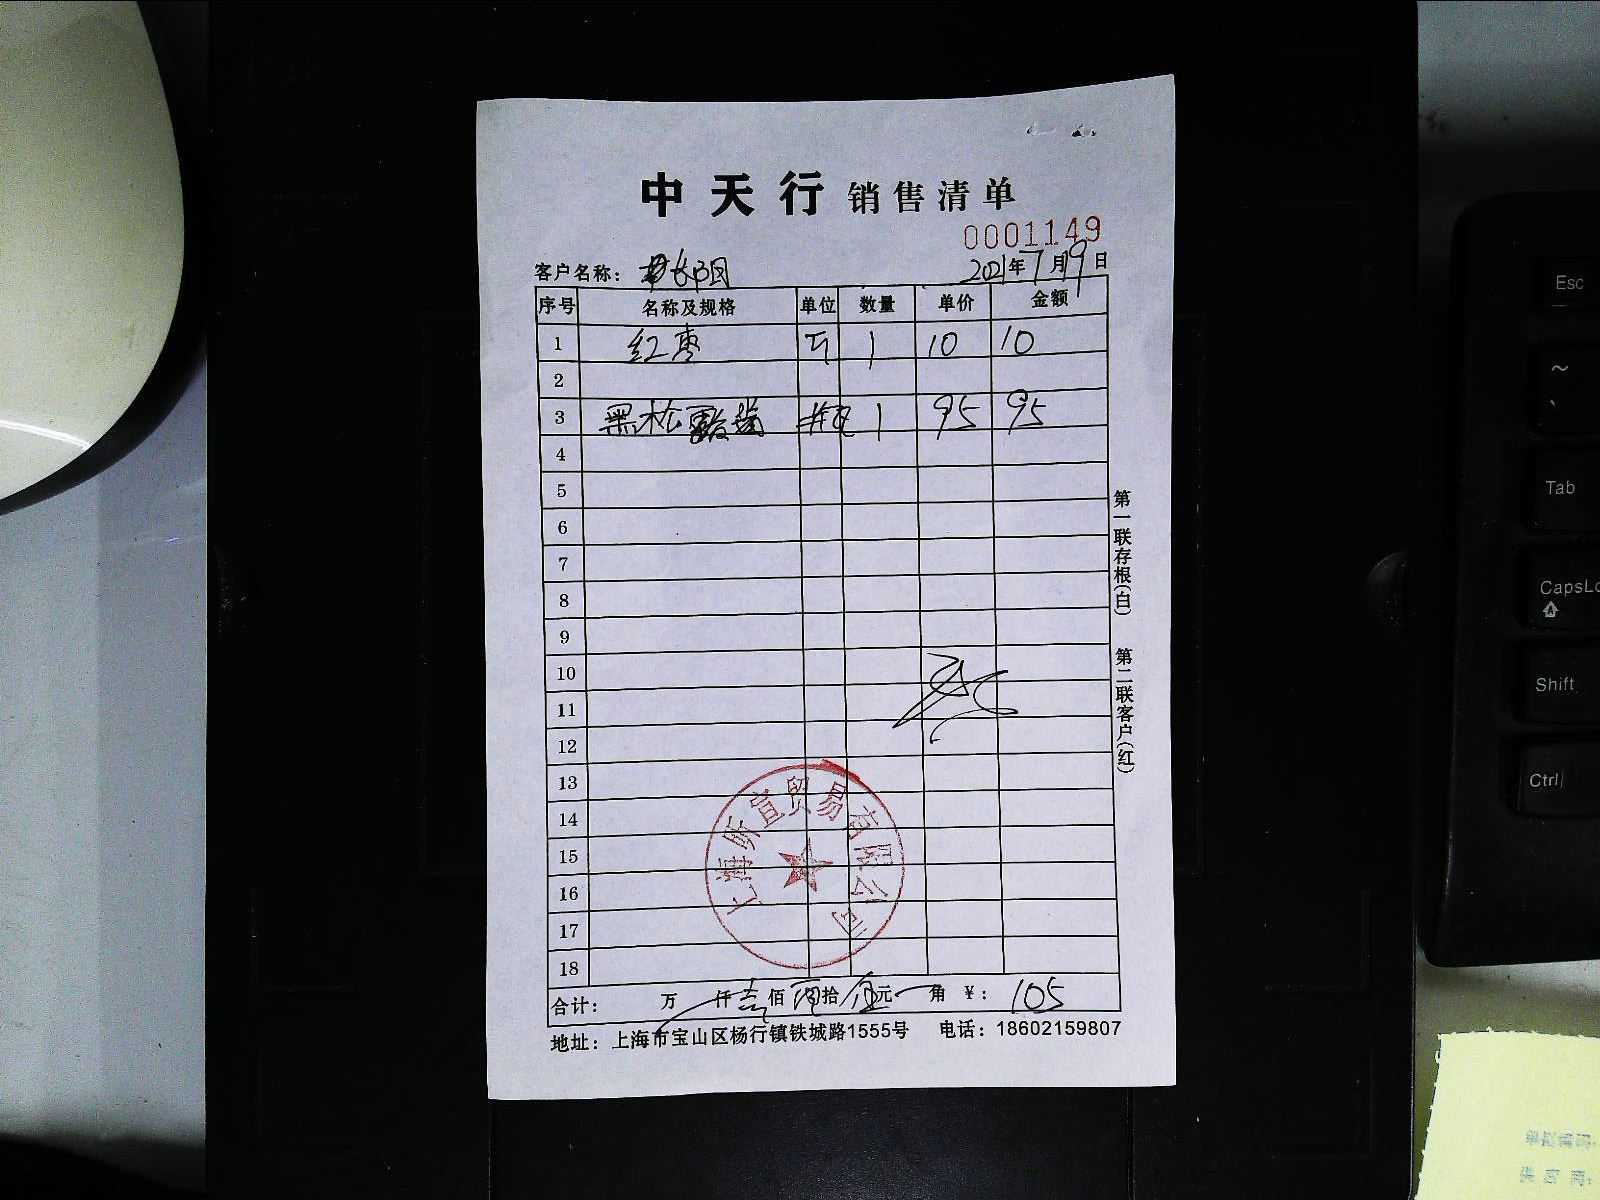 中天行 销售清单
0001149
客户名称： 2021年7月9日
序号 名称及规格 单位 数量 单价 金额
1 红枣 斤 1 10 10
2
3 黑松露 瓶 1 95 95
4
5
6
7
8
9
10
11
12
13
14
15
16
17
18
合计： 万 仟 壹佰 拾 伍元 角 ￥： 105
地址：上海市宝山区杨行镇铁城路1555号 电话：18602159807
第一联存根(白)
第二联客户(红)
上海昕宣贸易有限公司
Esc
~
Tab
CapsLo
Shift
Ctrl